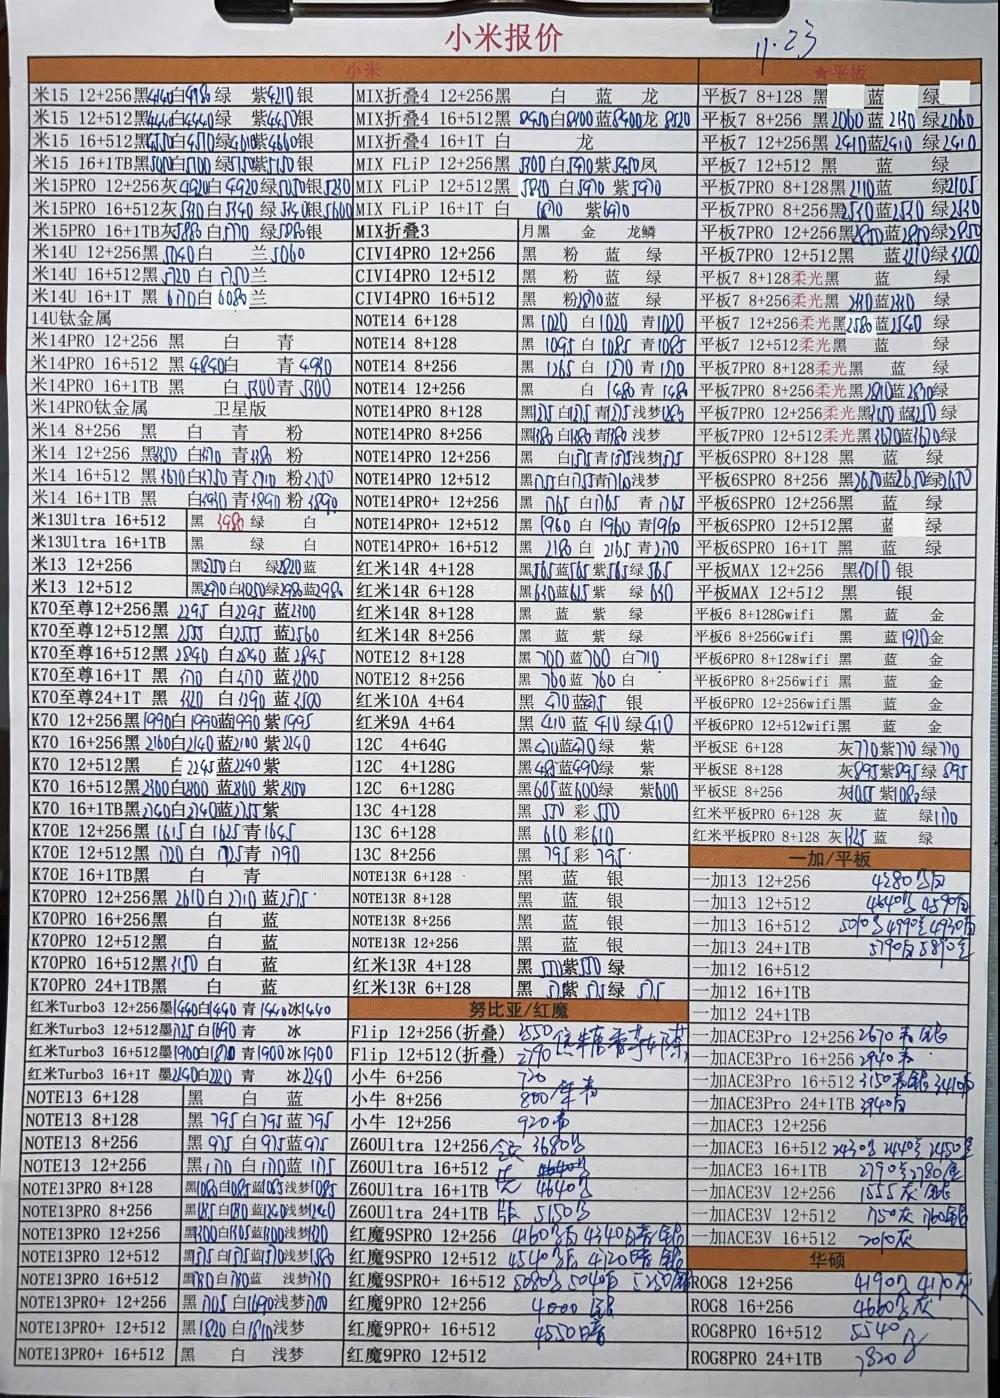 小米报价
11.23
小米
米15 12+256黑4140白4180绿 紫4210银
米15 12+512黑4440白4440绿 紫4450银
米15 16+512黑4550白4570绿4610紫4660银
米15 16+1TB黑 白5100绿 紫5150银
米15PRO 12+256灰4920白4920绿5050银5250
米15PRO 16+512灰5330白5340 绿5340银5600
米15PRO 16+1TB灰5880白 绿5880银
米14U 12+256黑5040白 兰5060
米14U 16+512黑5720白5750兰
米14U 16+1T 黑 白6080兰
14U钛金属
米14PRO 12+256 黑 白 青
米14PRO 16+512 黑4840白 青4910
米14PRO 16+1TB 黑 白5300青5300
米14PRO钛金属 卫星版
米14 8+256 黑 白 青 粉
米14 12+256 黑 白 青 粉
米14 16+512 黑 白 青 粉
米14 16+1TB 黑 白 青3890粉3890
米13Ultra 16+512 黑 3980 绿 白
米13Ultra 16+1TB 黑 绿 白
米13 12+256 黑 白 绿2820蓝
米13 12+512 黑2970白 绿2980蓝2980
K70至尊12+256黑 2295 白2295 蓝2300
K70至尊12+512黑 2555 白2555 蓝2560
K70至尊16+512黑 2840 白2840 蓝2845
K70至尊16+1T黑 白 蓝3200
K70至尊24+1T黑 白 蓝
K70 12+256黑1990白1990蓝1990紫1995
K70 16+256黑2160白2140蓝2100紫2240
K70 12+512黑 白2245蓝2240紫
K70 16+512黑2300白2300蓝2300紫2300
K70 16+1TB黑2740白2740蓝2755紫
K70E 12+256黑1615白1625青1645
K70E 12+512黑1720白1725青1790
K70E 16+1TB黑 白 青
K70PRO 12+256黑2610白2710蓝2575
K70PRO 16+256黑 白 蓝
K70PRO 12+512黑 白 蓝
K70PRO 16+512黑3150 白 蓝
K70PRO 24+1TB黑 白 蓝
红米Turbo3 12+256墨1440白1440青1440冰1440
红米Turbo3 12+512墨1725白1690青 冰
红米Turbo3 16+512墨1900白1870青1900冰1900
红米Turbo3 16+1T 墨2240白2220 青 冰2240
NOTE13 6+128 黑 白 蓝
NOTE13 8+128 黑 795白795蓝795
NOTE13 8+256 黑 975白975蓝975
NOTE13 12+256 黑1170白1170蓝1175
NOTE13PRO 8+128 黑1080白1085蓝1085浅梦1085
NOTE13PRO 8+256 黑 白 蓝1240浅梦1240
NOTE13PRO 12+256 黑1300白1305蓝1300浅梦1320
NOTE13PRO 12+512 黑1575白1575蓝1570浅梦1580
NOTE13PRO 16+512 黑1730白1730蓝 浅梦1730
NOTE13PRO+ 12+256 黑1705白1690浅梦1700
NOTE13PRO+ 12+512 黑1820白1810浅梦
NOTE13PRO+ 16+512 黑 白 浅梦
MIX折叠4 12+256黑 白 蓝 龙
MIX折叠4 16+512黑 8450白8100蓝8400龙8520
MIX折叠4 16+1T 白 龙
MIX FLiP 12+256黑 5300白5390紫5450凤
MIX FLiP 12+512黑 5870 白5970 紫5970
MIX FLiP 16+1T 白 6870 紫6970
MIX折叠3 月黑 金 龙鳞
CIVI4PRO 12+256 黑 粉 蓝 绿
CIVI4PRO 12+512 黑 粉 蓝 绿
CIVI4PRO 16+512 黑 粉2870蓝 绿
NOTE14 6+128 黑 1020 白 1020 青1020
NOTE14 8+128 黑 1095 白 1085 青1085
NOTE14 8+256 黑 1265 白 1270 青1270
NOTE14 12+256 黑 白 1480 青 1480
NOTE14PRO 8+128 黑1275白1275青1275浅梦1285
NOTE14PRO 8+256 黑1380白1380青1380浅梦
NOTE14PRO 12+256 黑 白1575青1575浅梦1575
NOTE14PRO 12+512 黑1755白1755青1710浅梦
NOTE14PRO+ 12+256 黑 1765 白1765 青 1765
NOTE14PRO+ 12+512 黑 1960 白 1960 青1960
NOTE14PRO+ 16+512 黑 2180 白 2165 青2170
红米14R 4+128 黑565蓝565紫565绿565
红米14R 6+128 黑630蓝615紫 绿 630
红米14R 8+128 黑 蓝 紫 绿
红米14R 8+256 黑 蓝 紫 绿
NOTE12 8+128 黑 700 蓝700 白710
NOTE12 8+256 黑 760 蓝760 白
红米10A 4+64 黑 470 蓝 银
红米9A 4+64 黑 410 蓝 410 绿410
12C 4+64G 黑470蓝470绿 紫
12C 4+128G 黑485蓝490绿 紫
12C 6+128G 黑605蓝600绿 紫600
13C 4+128 黑 550 彩 550
13C 6+128 黑 610 彩610
13C 8+256 黑 795 彩 795
NOTE13R 6+128 黑 蓝 银
NOTE13R 8+128 黑 蓝 银
NOTE13R 8+256 黑 蓝 银
NOTE13R 12+256 黑 蓝 银
红米13R 4+128 黑 570紫570 绿
红米13R 6+128 黑 紫 575绿 575
努比亚/红魔
Flip 12+256(折叠) 2550
Flip 12+512(折叠) 2790
小牛 6+256 720
小牛 8+256 800
小牛 12+256 920
Z60Ultra 12+256 3680
Z60Ultra 16+512 4640
Z60Ultra 16+1TB 4640
Z60Ultra 24+1TB 5150
红魔9SPRO 12+256 4160 4340
红魔9SPRO 12+512 4540 4120
红魔9SPRO+ 16+512 5080 5040 5250
红魔9PRO 12+256 4000
红魔9PRO+ 16+512 4550
红魔9PRO 12+512
★平板
平板7 8+128 黑 蓝 绿
平板7 8+256 黑2060蓝2130绿2060
平板7 12+256 黑2410蓝2410 绿2410
平板7 12+512 黑 蓝 绿
平板7PRO 8+128黑2110蓝 绿2105
平板7PRO 8+256黑2530蓝2530 绿2530
平板7PRO 12+256黑2850蓝2850 绿2850
平板7PRO 12+512黑 蓝3210绿3200
平板7 8+128柔光黑 蓝 绿
平板7 8+256柔光黑 2310蓝2310 绿
平板7 12+256柔光黑2580蓝2540 绿
平板7 12+512柔光黑 蓝 绿
平板7PRO 8+128柔光黑 蓝 绿
平板7PRO 8+256柔光黑2810蓝2870绿
平板7PRO 12+256柔光黑3150蓝 绿
平板7PRO 12+512柔光黑3670蓝3670绿
平板6SPRO 8+128 黑 蓝 绿
平板6SPRO 8+256 黑2650蓝2650绿2650
平板6SPRO 12+256 黑 蓝 绿
平板6SPRO 12+512 黑 蓝 绿
平板6SPRO 16+1T 黑 蓝 绿
平板MAX 12+256 黑 银
平板MAX 12+512 黑 银
平板6 8+128Gwifi 黑 蓝 金
平板6 8+256Gwifi 黑 蓝1920金
平板6PRO 8+128wifi 黑 蓝 金
平板6PRO 8+256wifi 黑 蓝 金
平板6PRO 12+256wifi黑 蓝 金
平板6PRO 12+512wifi黑 蓝 金
平板SE 6+128 灰770紫770 绿770
平板SE 8+128 灰895紫895绿 895
平板SE 8+256 灰1055紫1080绿
红米平板PRO 6+128 灰 蓝 绿1170
红米平板PRO 8+128 灰1325 蓝 绿
一加/平板
一加13 12+256 4280
一加13 12+512 4640 4590
一加13 16+512 5010 4990 4930
一加13 24+1TB 5790白5890
一加12 16+512
一加12 16+1TB
一加12 24+1TB
一加ACE3Pro 12+256 2670
一加ACE3Pro 16+256 2940
一加ACE3Pro 16+512 3150 3410
一加ACE3Pro 24+1TB 3940
一加ACE3 12+256
一加ACE3 16+512 2430 2440 2450
一加ACE3 16+1TB 2790 2780
一加ACE3V 12+256 1555灰
一加ACE3V 12+512 1750灰 1760银
一加ACE3V 16+512 2010灰
华硕
ROG8 12+256 4190 4170灰
ROG8 16+256 4660 灰
ROG8PRO 16+512 5540
ROG8PRO 24+1TB 7820